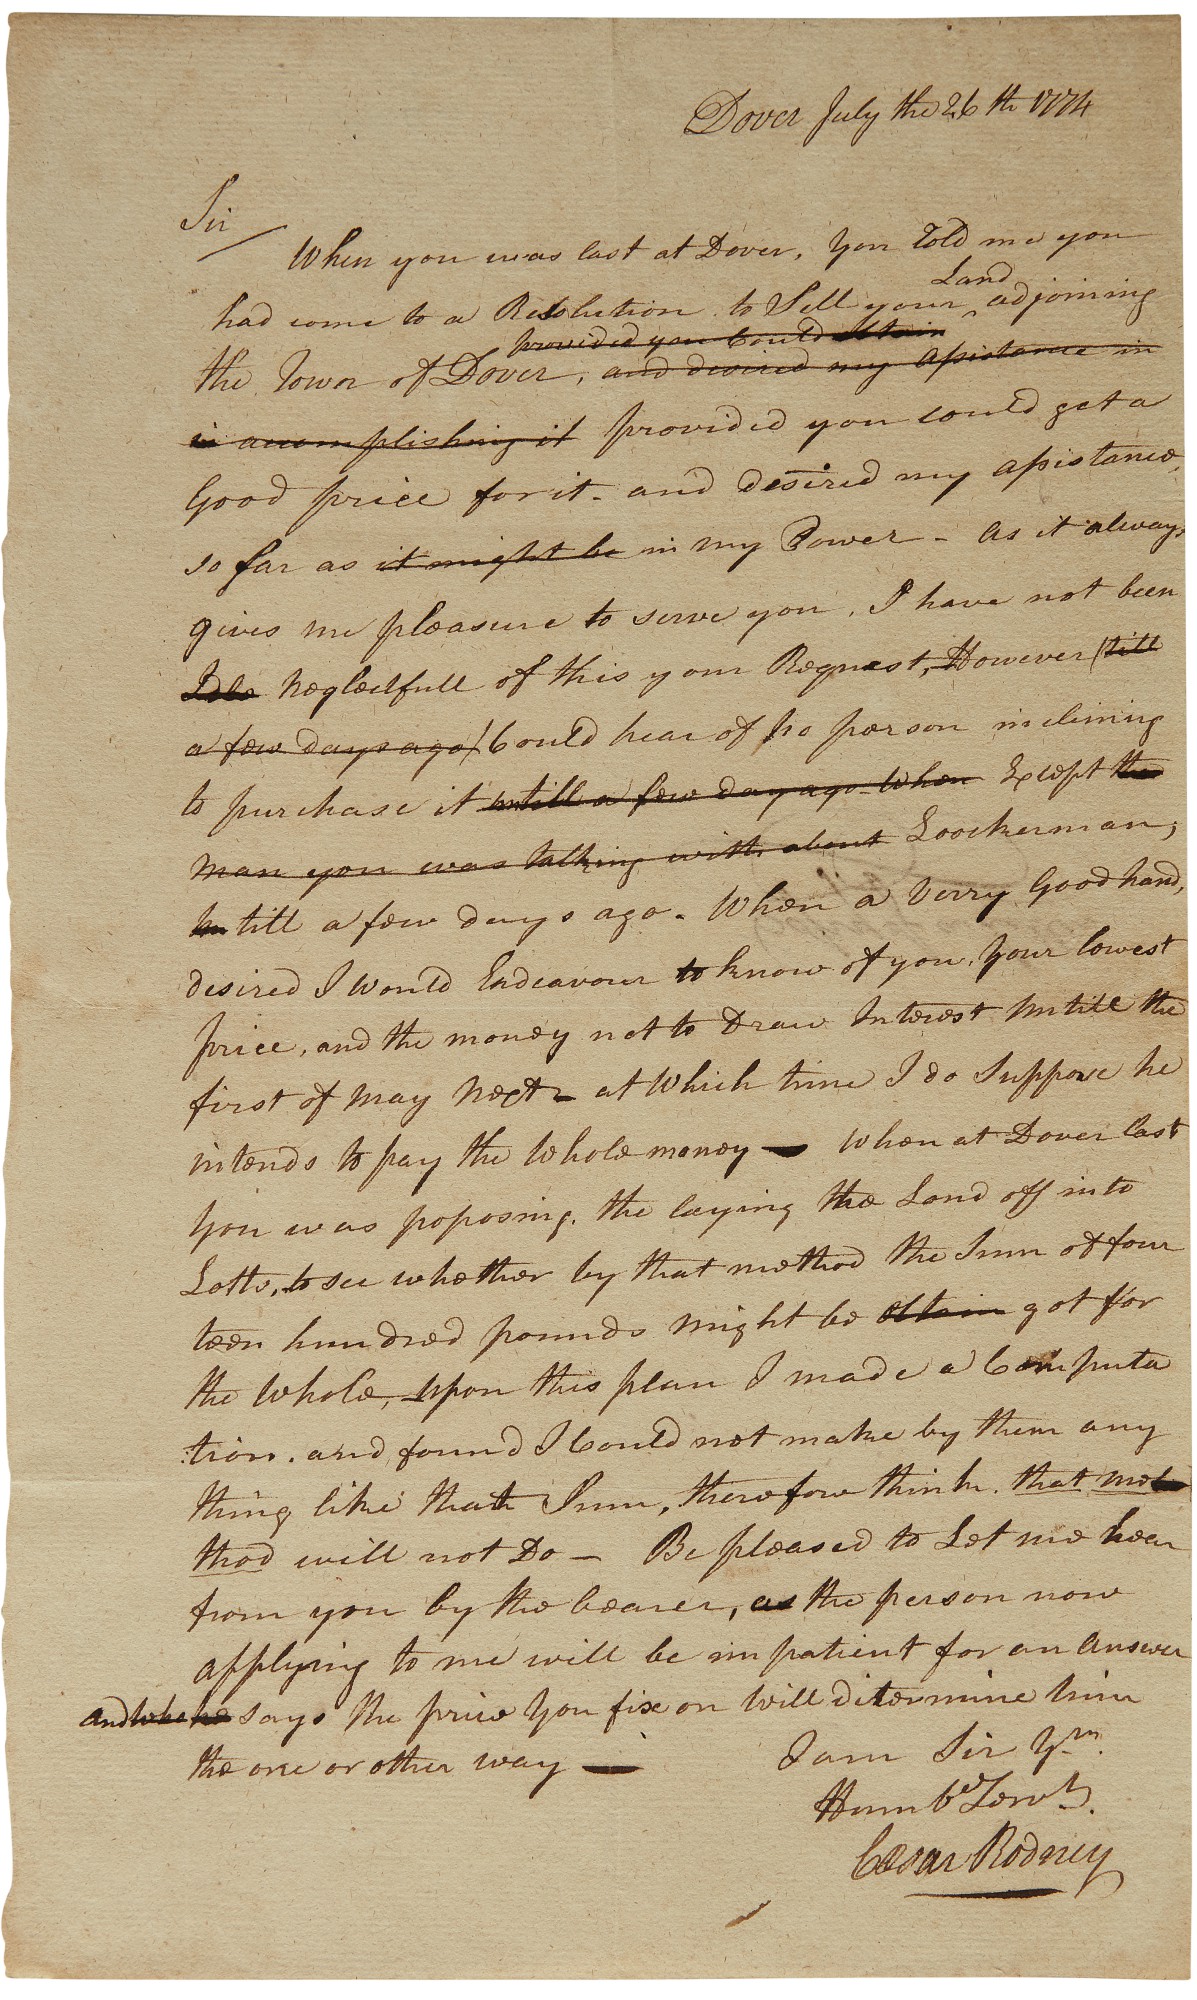 Dover July the 26th 1774
Sir
When you was last at Dover, You told me you
Land
had come to a Resolution to Sell your ^ adjoining
provided you Could obtain
the Town of Dover, and desired my assistance in
in accomplishing it provided you could get a
Good price for it - and desired my assistance,
so far as it might be in my Power - As it always
gives me pleasure to serve you, I have not been
Idle Neglectfull of this your Request, However (till
a few days ago) Could hear of no person inclining
to purchase it untill a few day ago When Except the
man you was talking with about Loockerman,
untill a few days ago. When a Verry Good hand,
desired I Would Endeavour to know of you, Your lowest
price, and the money not to Draw Interest Untill the
first of May Next - at Which time I do Suppose he
intends to pay the Whole money — When at Dover last
You was poposing, the laying the Land off into
Lotts, to see whether by that method the Sum of four
teen hundred pounds might be obtain got for
the Whole, upon this plan I made a Computa
:tion. and found I Could not make by them any
thing like that Sum, therefore think that me
thod will not Do — Be pleased to Let me hear
from you by the bearer, as the person now
applying to me will be impatient for an Answer
and who he says the price You fix on Will ditermine him
the one or other way —
I am Sir Yrs.
Humbe Servt.
Cæsar Rodney